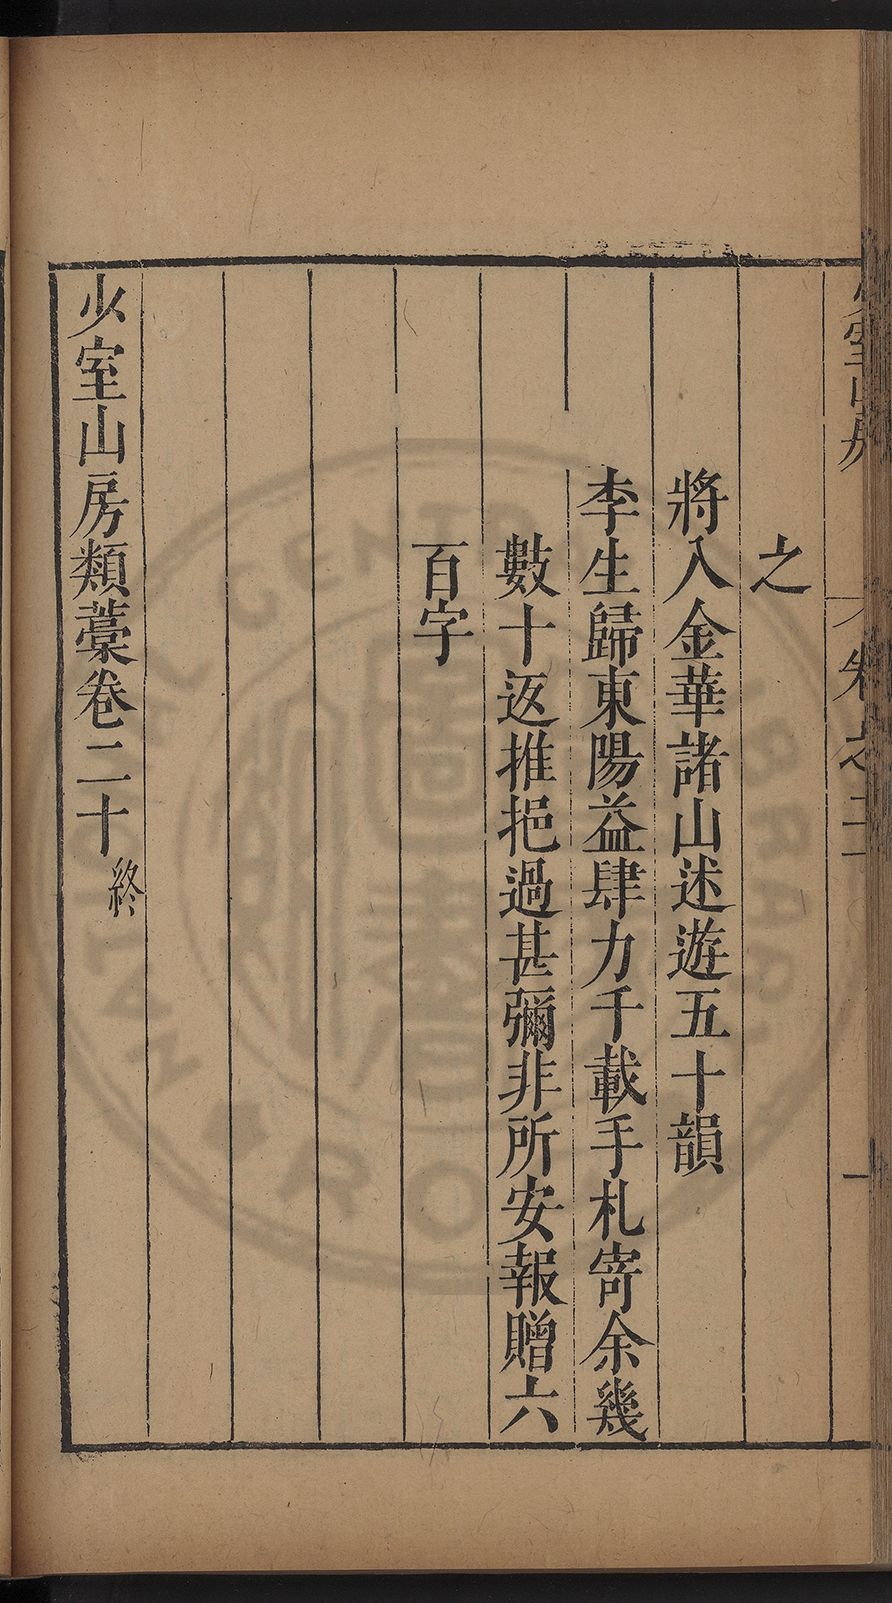 少室山房
卷之二十
之
將入金華諸山述遊五十韻
李生歸東陽益肆力千載手札寄余幾
數十返推挹過甚彌非所安報贈六
百字
少室山房類藁卷二十
終